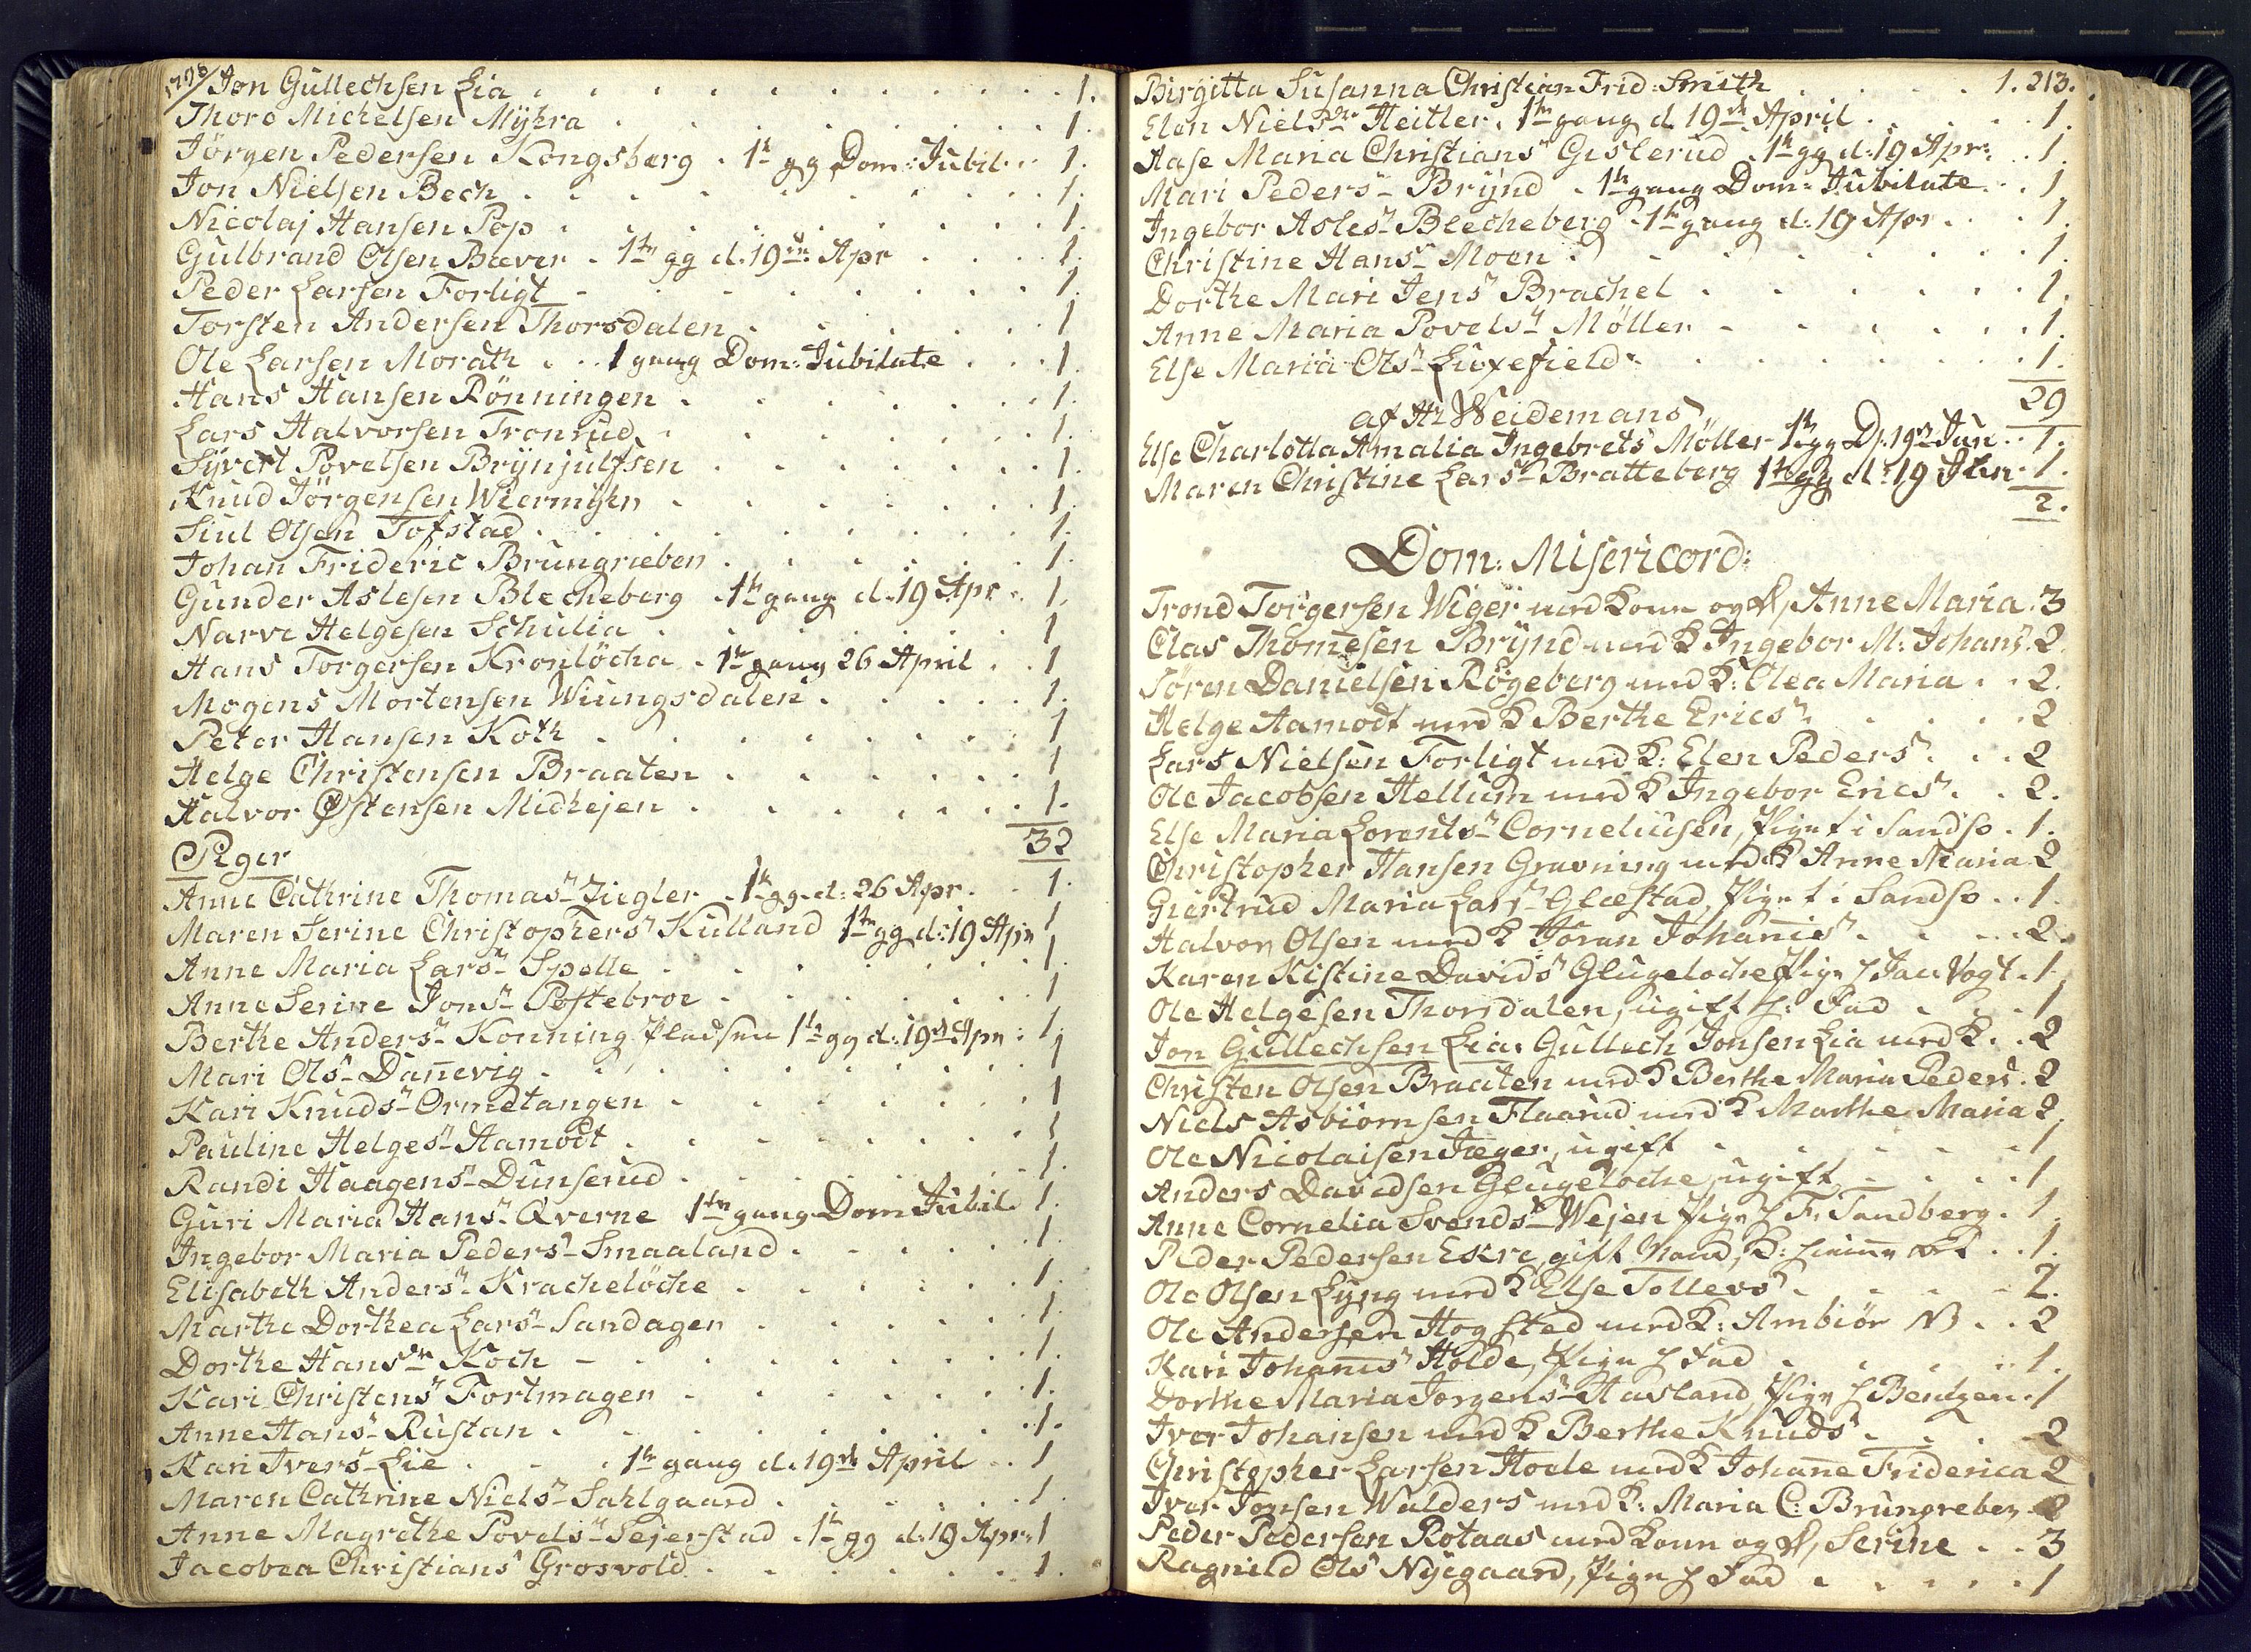 1798/ Jon Gullechsen Lia . . . . . 1.
Thoro Michelsen Mÿhra . . . . . 1.
Jörgen Pedersen Kongsberg . 1te gg Dom: Jubil . . 1.
Jon Nielsen Bech . . . . . 1.
Nicolaj Hansen Pop . . . . . 1.
Gulbrand Olsen Bæver . 1te gg d: 19de Apr . . . . 1.
Peder Larsen Forligt . . . . . 1.
Torsten Andersen Thorsdalen . . . . . 1
Ole Larsen Morath . . 1 gang Dom: Jubilate . . . 1.
Hans Hansen Rönningen . . . . . 1.
Lars Halvorsen Tronrud . . . . . 1.
Sÿvert Povelsen Brÿnjulfsen . . . . . 1.
Knud Jörgensen Wiermÿhr . . . . . 1.
Siul Olsen Tofstad . . . . . 1.
Johan Frideric Brungræben . . . . . 1.
Gunder Aslesen Blecheberg . 1te gang d: 19 Apr . 1.
Narve Helgesen Schulia . . . . . 1
Hans Torgersen Kronlöcha . 1te gang 26 April . . 1
Mogens Mortensen Wiungsdalen . . . . . 1.
Peter Hansen Koth . . . . . 1
Helge Christensen Braaten . . . . . 1
Halvor Østensen Midhejen . . . . . 1.
32
Piger
Anne Cathrine Thomasdr Ziegler . 1te gg d: 26 Apr . . 1.
Maren Serine Christophersdr Kulland 1te gg d: 19 Apr 1
Anne Maria Larsdr Spelle . . . . . 1.
Anne Serine Jonsdr Postebroe . . . . . 1
Berthe Andersdr Konning Pladsen 1te gg d: 19de Apr : 1.
Mari Olsdr Dañevig . . . . . 1
Kari Knudsdr Ormetangen . . . . . 1
Pauline Helgesdr Aamodt . . . . . 1
Randi Haagensdr Dunserud . . . . . 1.
Guri Maria Hansdr Qverne 1te gang Dom Jubil 1.
Ingebor Maria Pedersdr Smaaland . . . . . 1.
Elisabeth Andersdr Krachelöche . . . . . 1.
Marthe Dorthea Larsdr Sandager . . . . . 1.
Dorthe Hansdr Koch . . . . . 1.
Kari Christensdr Fortmager . . . . . 1.
Anne Hansdr Rustan . . . . . 1.
Kari Iversdr Lie . . . 1te gang d: 19de April . . 1
Maren Cathrine Nielsdr Sahlgaard . . . . . 1.
Anne Magrethe Povelsdr Sejerstad . 1te gg d: 19 Apr: 1
Jacobea Christians Grosvold . . . . . 1.
Birgitta Susanna Christian Frid: Smith . . . . 1. 213.
Elen Nielsdr Heitler . 1te gang d 19de April . . . . 1.
Aase Maria Christiansdr Gislerud . 1te gg d: 19 Apr: . . 1.
Mari Pedersdr Brÿnd . 1te gang Dom: Jubilate . . 1
Ingebor Aslesdr Blecheberg . 1te gang d: 19 Apr . . . 1.
Christine Hansdr Moen . . . . . 1.
Dorthe Mari Jensdr Brachel . . . . . 1.
Anne Maria Povelsdr Möller . . . . . 1.
Else Maria Olsdr Luxefield . . . . . 1.
29
af Hr Weidemans
Else Charlotta Amalia Ingebrets Möller 1te gg D: 19de Jun . . 1.
Maren Christine Larsdr Bratteberg 1te gg d: 19 1.
2.
Dom: Misericord:
Trond Torgersen Wiger med Kone og D, Anne Maria . 3
Clas Thomesen Brÿnd med K Ingebor M: Johans . 2.
Sören Danielsen Rögeberg med K: Olea Maria . . 2.
Helge Aamodt med K Berthe Ericsdr . . . . 2
Lars Nielsen Forligt med K: Elen Pedersdr . . 2
Ole Jacobsen Hellum med K Ingebor Ericsdr . . 2.
Else Maria Lorentsdr Corneliusen, Pige i Sandsv . 1.
Christopher Hansen Gravning med K Anne Maria 2
Giertrud Maria Larsdr Glæstad, Pige i Sandsv . . 1.
Halvor Olsen med K Jöran Johañisdr . . . . 2.
Karen Kistine Davids Glugeloche Pige h Jac: Vogt . 1.
Ole Helgesen Thorsdalen, ugift h: Fad . . . . 1
Jon Gullechsen Lia. Gullech Jonsen Lia med K . . 2
Christen Olsen Braaten med K Berthe Maria Peders . 2
Niels Asbiörnsen Flaarud med K Marthe Maria 2.
Ole Nicolaisen Jæger, ugift . . . . . 1
Anders Davidsen Glugeloche, ugift . . . . 1
Anne Cornelia Svendsdr Wejen Pige h F: Sandberg . 1.
Peder Pedersen Eskre, gift Mand, K: . . 1.
Ole Olsen Lÿng med K Else Tollevs . . . . 2.
Ole Andersen Hogsted med K: Ambiör N . . 2
Kari Johañis Holde, Pige h Fad . . . . 1.
Dorthe Maria Jorgensdr Havland, Pige h Bentzen . 1
Iver Johansen med K Berthe Knuds . . . . 2
Christopher Larsen Hoele med K Johañe Friderica 2
Iver Jonsen Walders med K: Maria C: Brungreben 2
Peder Pedersen Rotaas med Kone og D, Serine . . 3
Ragnild Ols Nÿegaard, Pige h Fad . . . . . 1